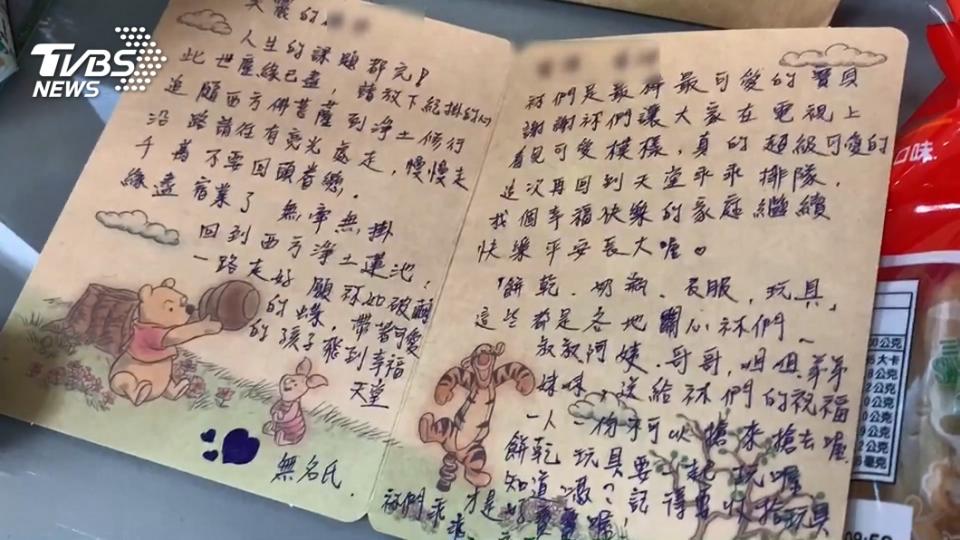 TVBS
NEWS
美麗的
人生的課題都完！
此世塵緣已盡，請放下罣掛的心
追隨西方佛菩薩到淨土修行
沿路請往有亮光處走，慢慢走
千萬不要回頭眷戀，
緣盡宿業了 無牽無掛
回到西方淨土蓮池，
一路走好 願祢如破繭
的蝶，帶著可愛
的孩子飛到幸福
天堂
無名氏
祢們是最棒最可愛的寶貝
謝謝祢們讓大家在電視上
看見可愛模樣，真的超級可愛的
這次再回到天堂乖乖排隊，
找個幸福快樂的家庭繼續
快樂平安長大喔。
「餅乾、奶瓶、衣服，玩具」
這些都是各地關心祢們～
叔叔阿姨、哥哥，姐姐弟弟
妹妹，送給祢們的祝福
一人一份不可以搶來搶去喔
餅乾玩具要一起玩喔
知道嗎？記得要收拾玩具
祢們乖乖才是好寶寶喔！
口味
公克
大卡
公克
公克
公克
公克
公克
公克
毫克